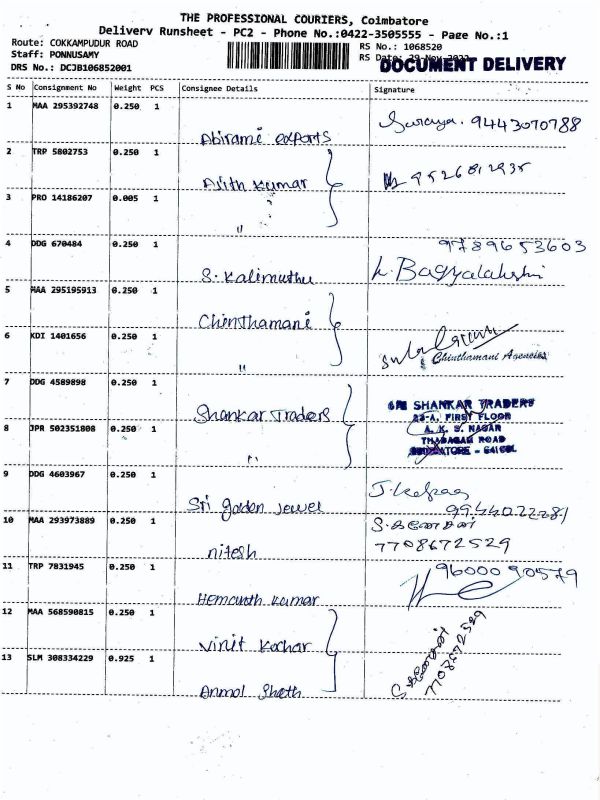 THE PROFESSIONAL COURIERS, Coimbatore
Delivery Runsheet - PC2 - Phone No.:0422-3505555 - Page No.:1
Route: COKKAMPUDUR ROAD
Staff: PONNUSAMY
DRS No.: DCJB106852001
RS No.: 1068520
RS Date: 29 Nov 2022
DOCUMENT DELIVERY
S No Consignment No Weight PCS Consignee Details Signature
1 MAA 295392748 0.250 1 Abirami exports 9443070788
2 TRP 5802753 0.250 1 Ajith kumar 9526812935
3 PRO 14186207 0.005 1 "
4 DDG 670484 0.250 1 S. Kalimuthu 9789653603
5 MAA 295195913 0.250 1 Chinthamani
6 KDI 1401656 0.250 1 " Chinthamani Agencies
7 DDG 4589898 0.250 1 Shankar Traders
8 JPR 502351808 0.250 1 "
SHANKAR TRADERS
23-A, FIRST FLOOR
A. K. S. NAGAR
THADAGAM ROAD
9 DDG 4603967 0.250 1 Sri golden jewel
10 MAA 293973889 0.250 1 nitesh 7708672529
11 TRP 7831945 0.250 1 Hemanth kumar 9600090579
12 MAA 568590815 0.250 1 Vinit Kochar
13 SLM 308334229 0.925 1 Anmol Sheth
7708672529